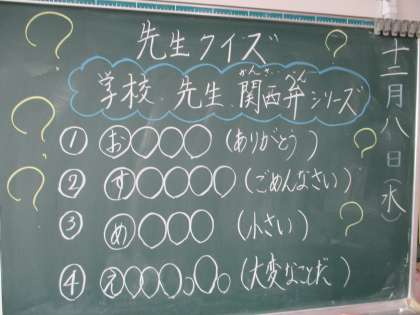 先生クイズ
学校、先生、関西弁シリーズ
かんさい べん
① お○○○○ (ありがとう)
② す○○○○○ (ごめんなさい)
③ め○○○○ (小さい)
④ え○○○○○ (大変なことだ)
十二月八日(水)